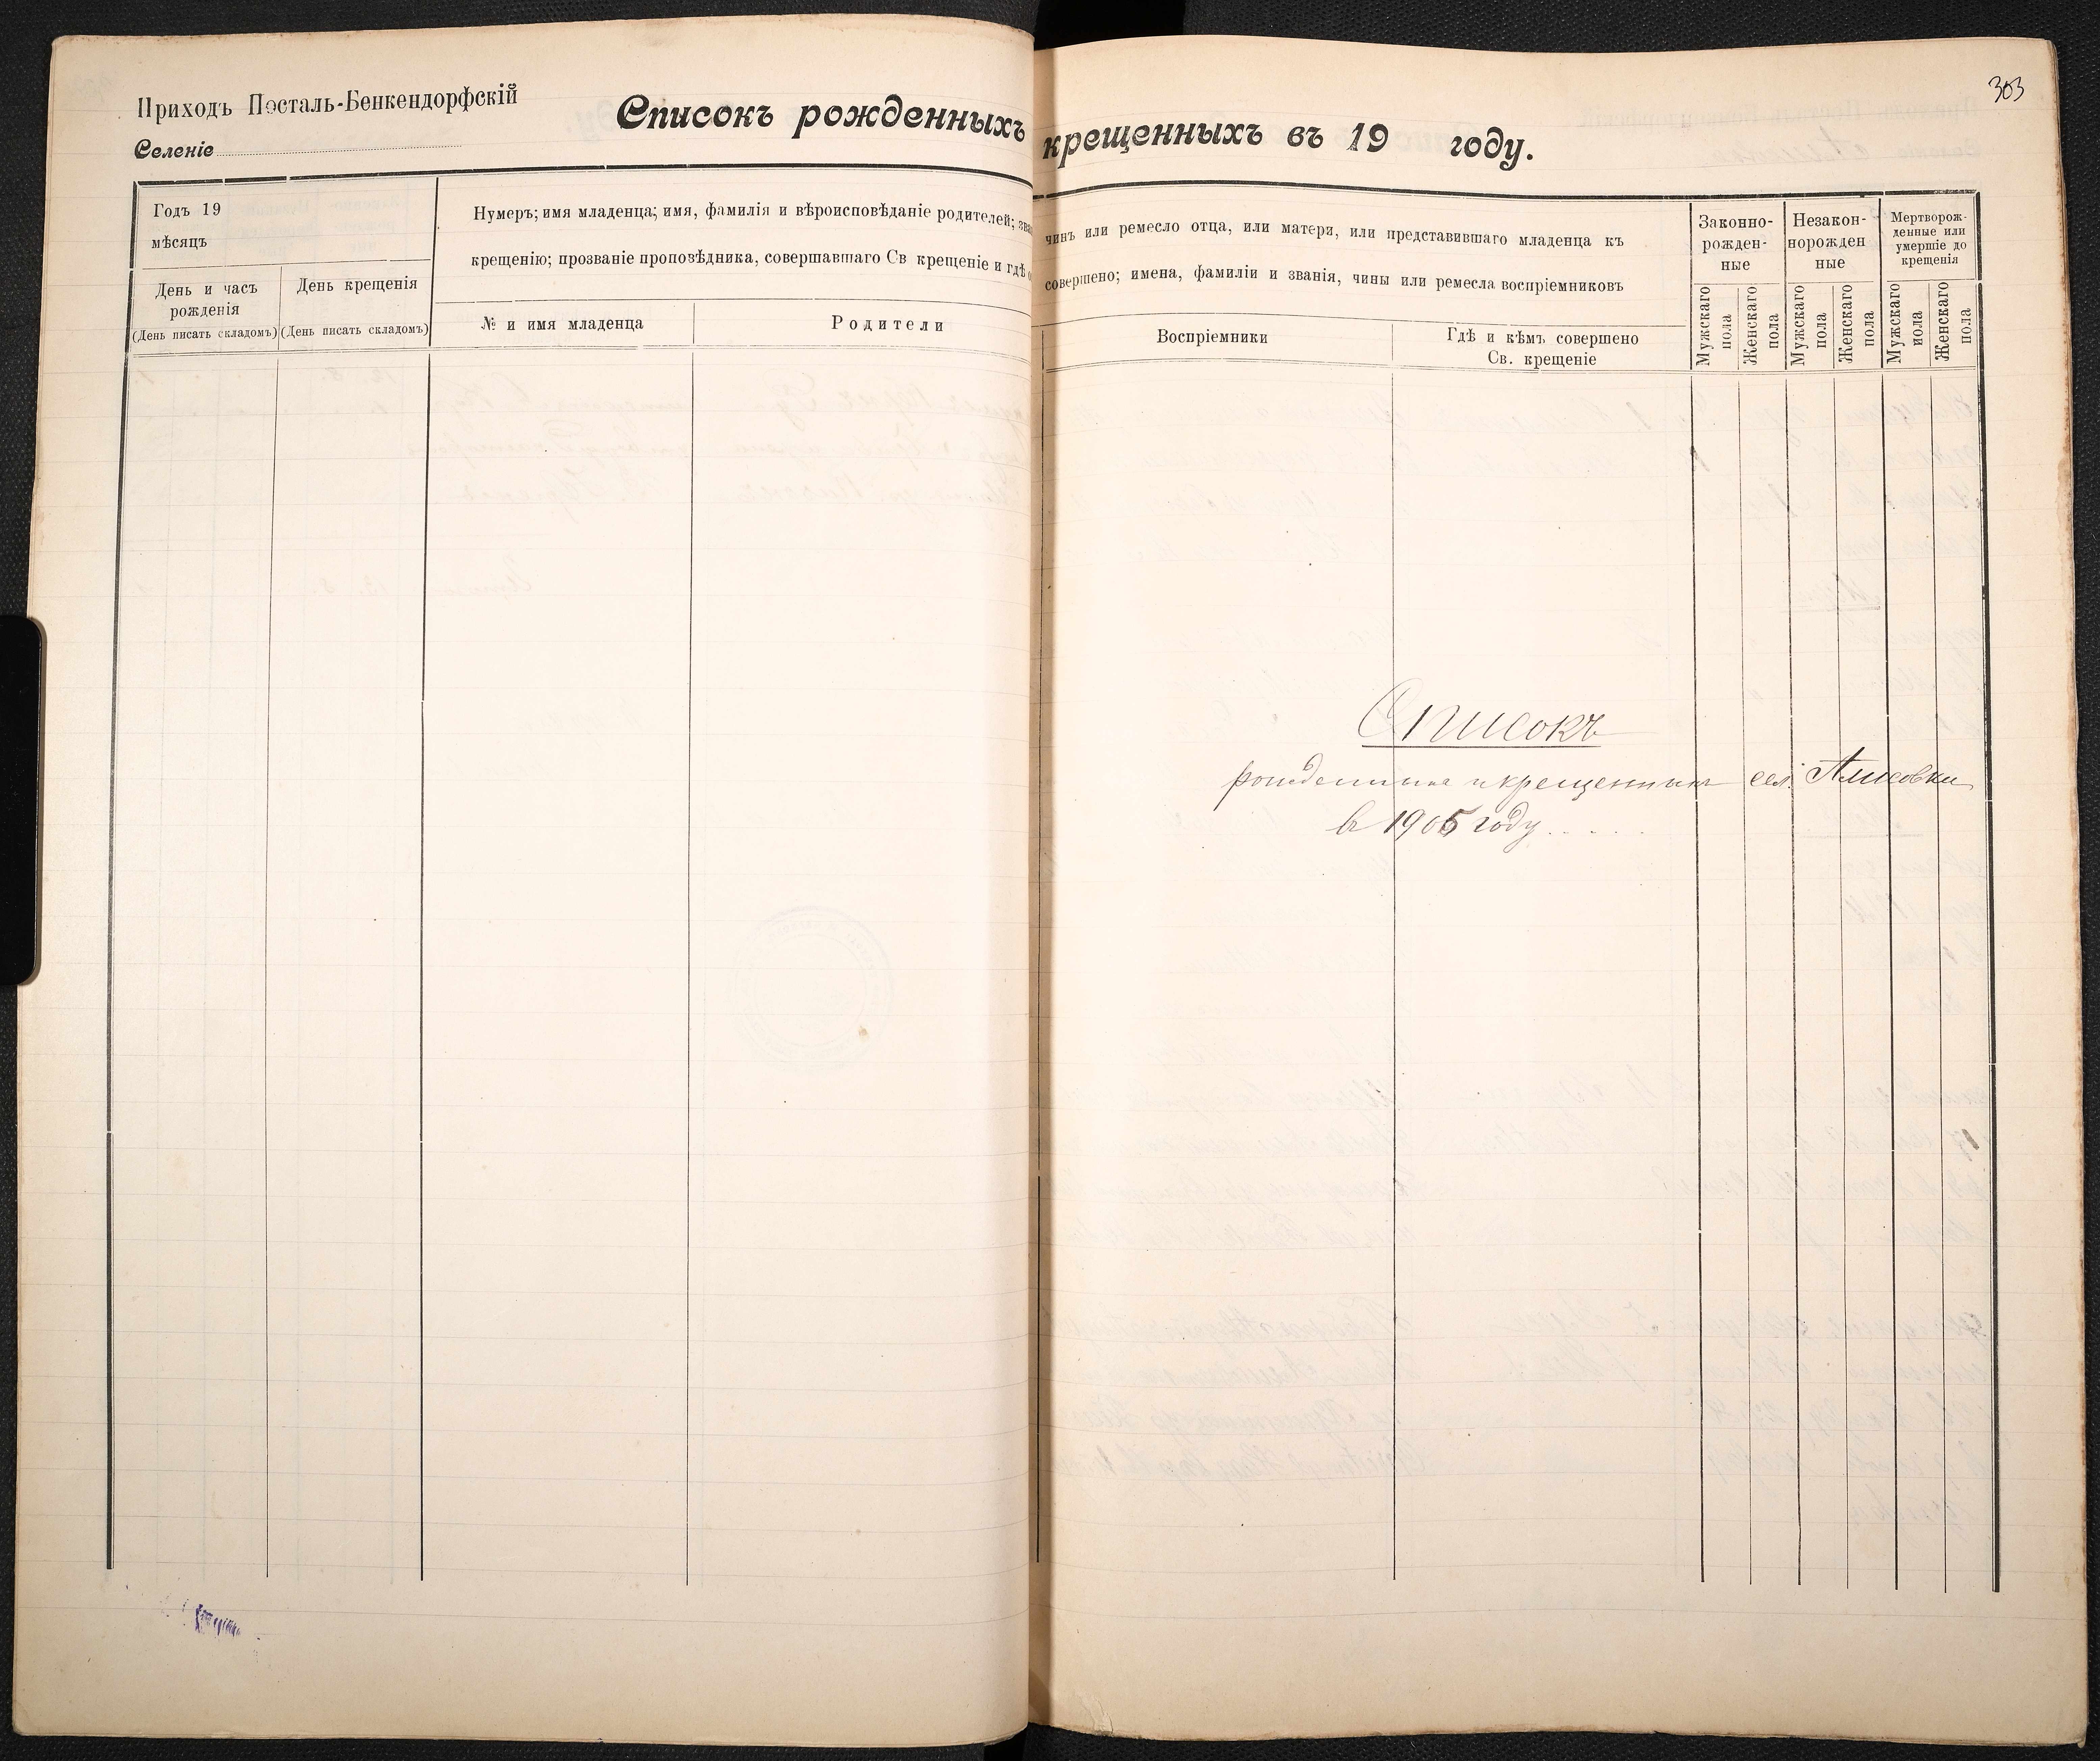 303
Приходъ Посталь-Бенкендорфскій
Селеніе
Списокъ рожденныхъ крещенныхъ въ 19 году.
Годъ 19
мѣсяцъ
День и часъ
рожденія
(День писать складомъ)
День крещенія
(День писать складомъ)
Нумеръ; имя младенца; имя, фамилія и вѣроисповѣданіе родителей; чинъ или ремесло отца, или матери, или представившаго младенца къ
крещенію; прозваніе проповѣдника, совершавшаго Св крещеніе и гдѣ совершено; имена, фамиліи и званія, чины или ремесла воспріемниковъ
№ и имя младенца
Родители
Воспріемники
Гдѣ и кѣмъ совершено
Св. крещеніе
Законно-
рожден-
ные
Мужскаго
пола
Женскаго
пола
Незакон-
норожден
ные
Мужскаго
пола
Женскаго
пола
Мертворож-
денные или
умершіе до
крещенія
Мужскаго
пола
Женскаго
пола
Списокъ
рожденныхъ и крещенныхъ сел.
въ 1905 году